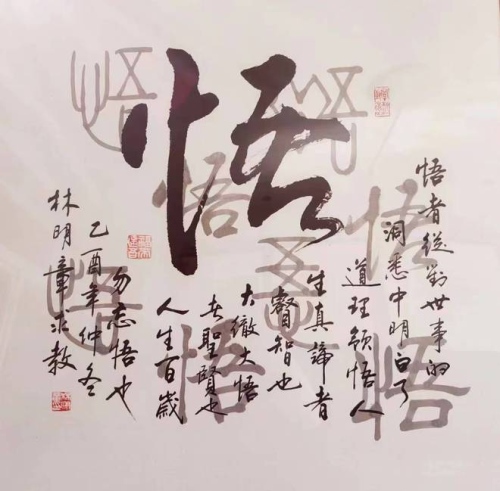 悟
悟者從對世事的
洞悉中明白了
道理領悟人
生真諦者
睿智也
大徹大悟
者聖賢也
人生百歲
勿忘悟也
乙酉年仲冬
林明章求教
悟
悟
悟